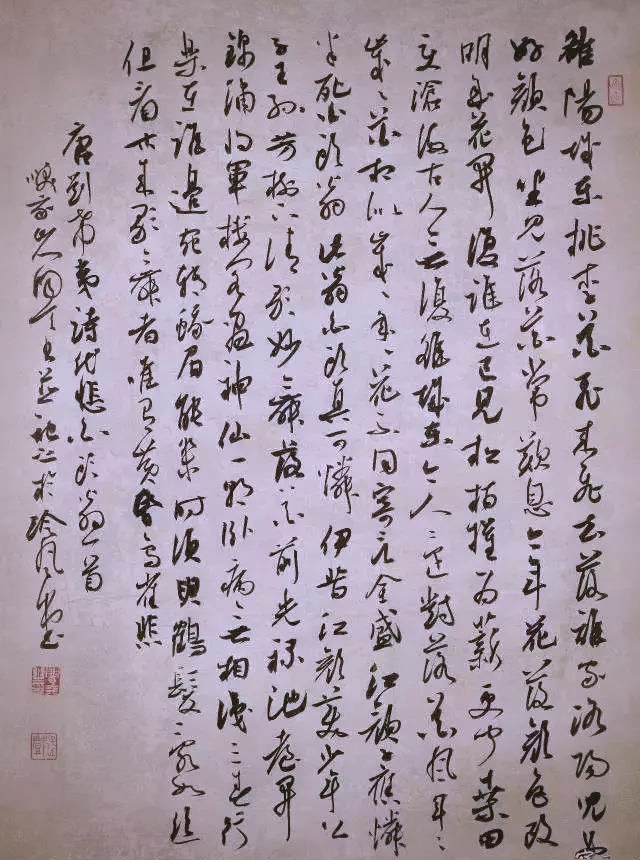 雒陽城東桃李花飛來飛去落誰家洛陽兒女
好顏色坐見落花常歎息今年花落顏色改
明年花開復誰在已見松柏摧為薪更聞桑田
變滄海古人無復雒城東今人還對落花風年々
歲々花相似歲々年々花不同寄言全盛紅顏子應憐
半死白頭翁此翁白頭真可憐伊昔紅顏美少年公
子王孫芳樹下清歌妙舞落花前光祿池臺開
錦繡將軍樓閣畫神仙一朝臥病無相識三春行
樂在誰邊宛轉蛾眉能幾時須臾鶴髮亂如絲
但看古來歌舞者唯有黃昏鳥雀悲
唐劉希夷詩代悲白頭翁一首